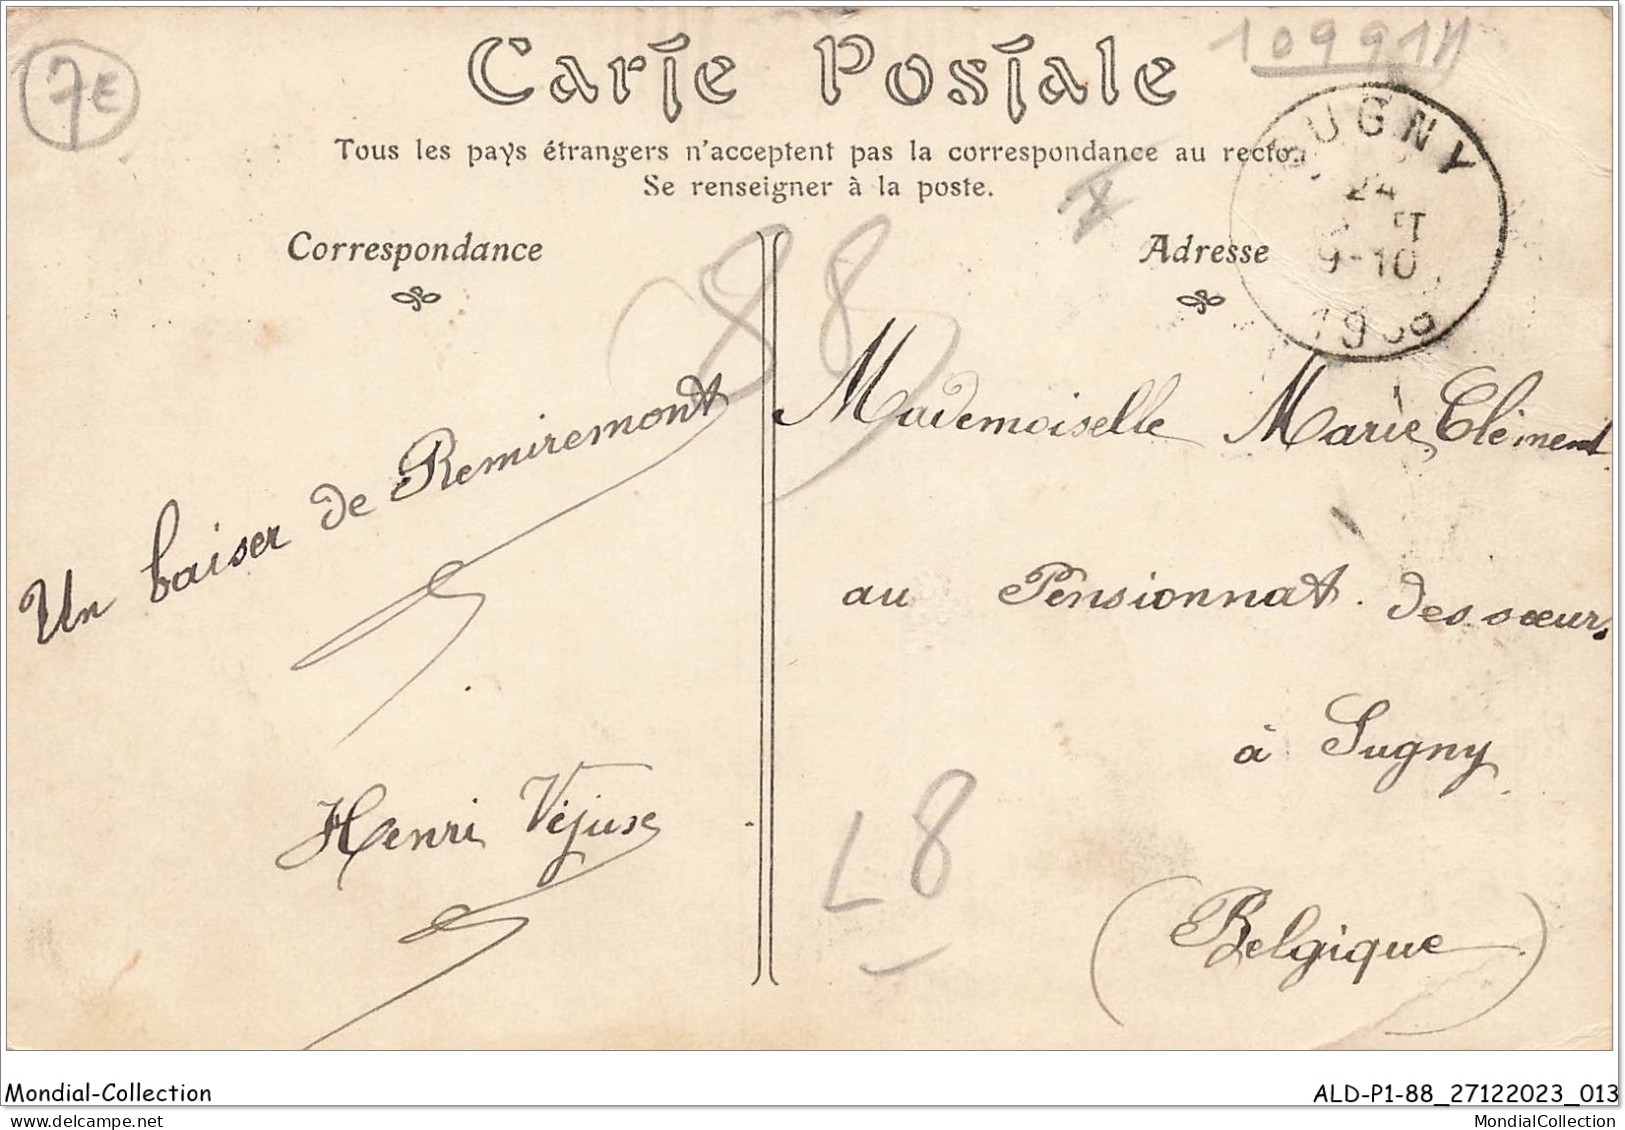 7E
109911
Carte Postale
Tous les pays étrangers n'acceptent pas la correspondance au recto.
Se renseigner à la poste.
SUGNY
24
9-10
Correspondance
Adresse
88
Un baiser de Remiremont
Henri
Mademoiselle Marie Clément
au Pensionnat des sœurs
à Sugny
(Belgique)
L8
Mondial-Collection
ALD-P1-88_27122023_013
MondialCollection